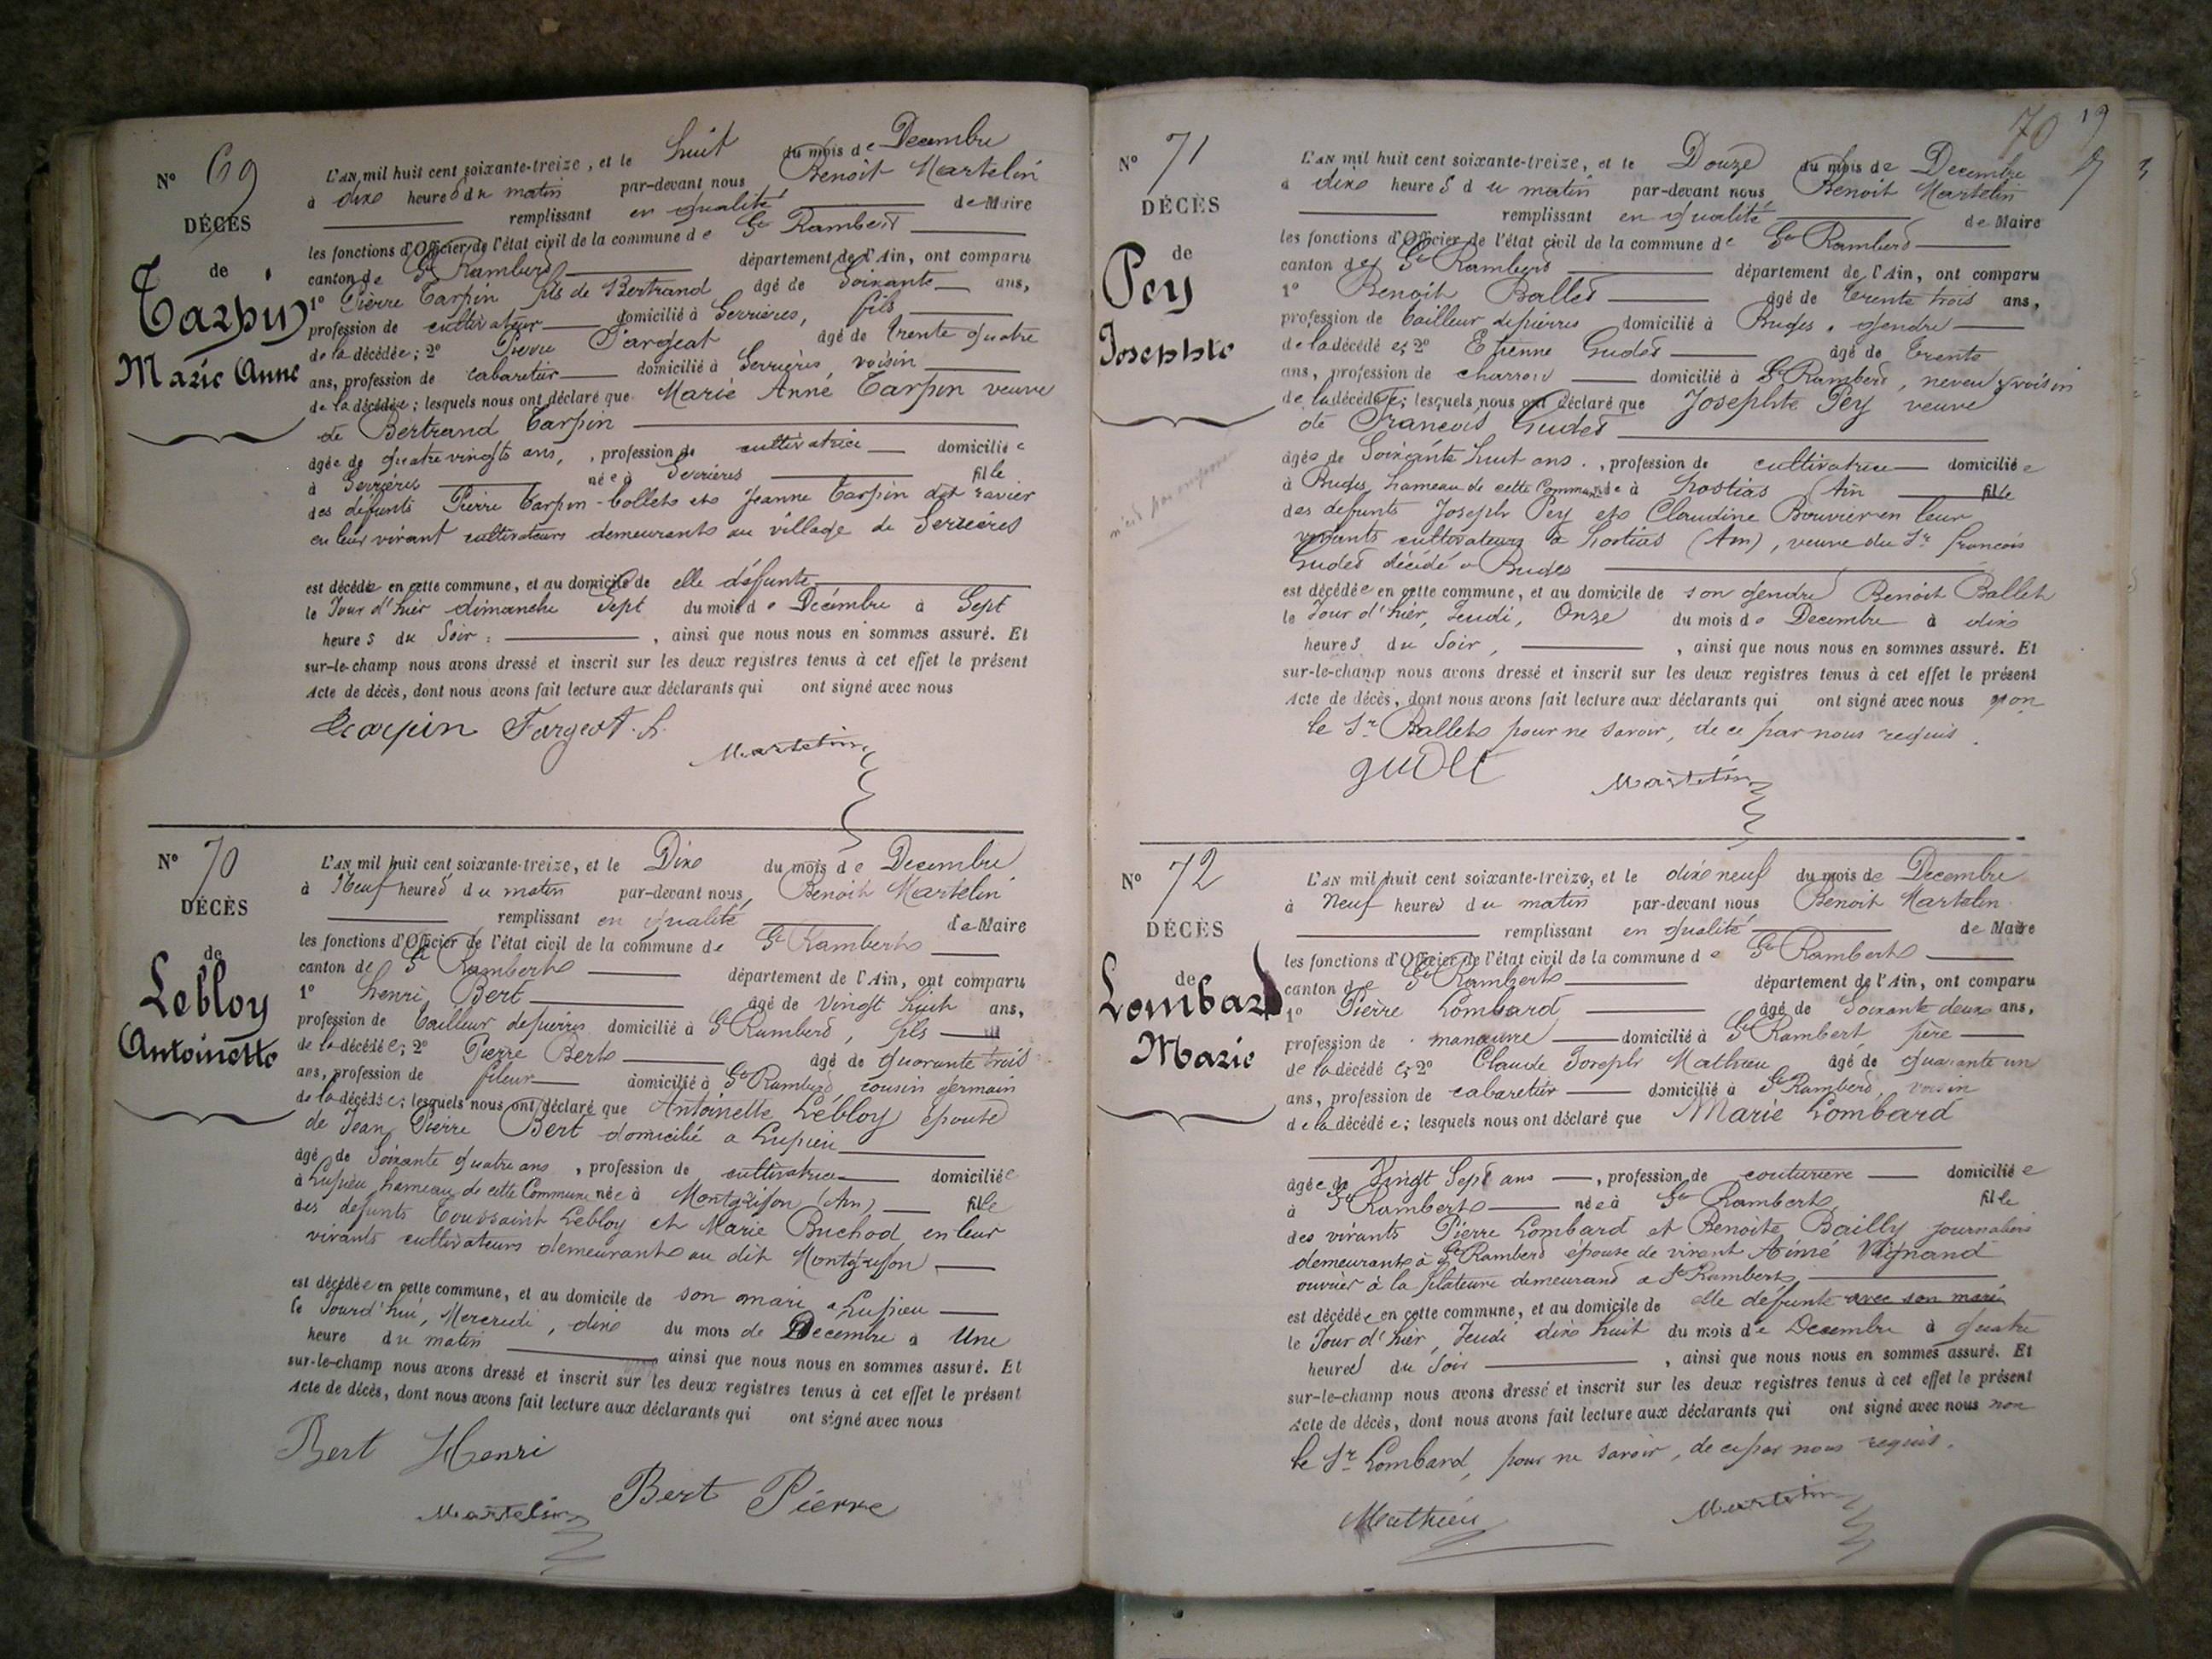 N° 69
DÉCÈS
de
Tarpin
Marie Anne
L'AN mil huit cent soixante-treize, et le huit du mois de Decembre
à dix heures du matin par-devant nous Benoit Martelin
remplissant en qualité de Maire
les fonctions d'Officier de l'état civil de la commune de St Rambert
canton de St Rambert département de l'Ain, ont comparu
1° Pierre Tarpin fils de Bertrand âgé de Soixante ans,
profession de cultivateur domicilié à Serrières, fils
de la décédée; 2° Pierre Fargeat âgé de trente quatre
ans, profession de cabaretier domicilié à Serrières, voisin
de la décédée; lesquels nous ont déclaré que Marie Anne Tarpin veuve
de Bertrand Tarpin
âgée de quatre vingts ans, profession de cultivatrice domiciliée
à Serrières née à Serrières fille
des défunts Pierre Tarpin-Collet et Jeanne Tarpin dit ravier
en leur vivant cultivateurs demeurants au village de Serrières
est décédée en cette commune, et au domicile de elle défunte
le Jour d'hier dimanche Sept du mois de Décembre à Sept
heures du Soir, ainsi que nous nous en sommes assuré. Et
sur-le-champ nous avons dressé et inscrit sur les deux registres tenus à cet effet le présent
Acte de décès, dont nous avons fait lecture aux déclarants qui ont signé avec nous
Tarpin Fargeot
Martelin
N° 70
DÉCÈS
de
Lebloy
Antoinette
L'AN mil huit cent soixante-treize, et le Dix du mois de Decembre
à Neuf heures du matin par-devant nous, Benoit Martelin
remplissant en qualité de Maire
les fonctions d'Officier de l'état civil de la commune de St Rambert
canton de St Rambert département de l'Ain, ont comparu
1° henri Bert âgé de Vingt huit ans,
profession de tailleur de pierres domicilié à St Rambert, fils
de la décédée; 2° Pierre Bert âgé de quarante trois
ans, profession de fileur domicilié à St Rambert cousin germain
de la décédée; lesquels nous ont déclaré que Antoinette Lebloy épouse
de Jean Pierre Bert domicilié a Lupieu
âgé de Soixante quatre ans, profession de cultivatrice domiciliée
à Lupieu hameau de cette Commune née à Montgriffon (Ain) fille
des défunts Toussaint Lebloy et Marie Buchod en leur
vivants cultivateurs demeurants au dit Montgriffon
est décédée en cette commune, et au domicile de son mari a Lupieu
le Jourd'hui, Mercredi, dix du mois de Decembre à Une
heure du matin ainsi que nous nous en sommes assuré. Et
sur-le-champ nous avons dressé et inscrit sur les deux registres tenus à cet effet le présent
Acte de décès, dont nous avons fait lecture aux déclarants qui ont signé avec nous
Bert Henri
Martelin Bert Pierre
70 19
N° 71
DÉCÈS
de
Pey
Josephte
L'AN mil huit cent soixante-treize, et le Douze du mois de Decembre
à dix heures du matin par-devant nous Benoit Martelin
remplissant en qualité de Maire
les fonctions d'Officier de l'état civil de la commune de St Rambert
canton de St Rambert département de l'Ain, ont comparu
1° Benoit Ballet âgé de trente trois ans,
profession de tailleur de pierres domicilié à Buges, gendre
de la décédée; 2° Etienne Gudet âgé de trente
ans, profession de charron domicilié à St Rambert, neveu & voisin
de la décédée; lesquels nous ont déclaré que Josephte Pey veuve
de Francois Gudet
âgée de Soixante huit ans, profession de cultivatrice domiciliée
à Buges, hameau de cette Commune née à hostias Ain fille
des defunts Joseph Pey et Claudine Bouvier en leur
vivants cultivateurs à hostias (Ain), veuve du Sr francois
Gudet décédé a Buges
est décédée en cette commune, et au domicile de son gendre Benoit Ballet
le Jour d'hier, Jeudi, Onze du mois de Decembre à dix
heures du Soir, ainsi que nous nous en sommes assuré. Et
sur-le-champ nous avons dressé et inscrit sur les deux registres tenus à cet effet le présent
Acte de décès, dont nous avons fait lecture aux déclarants qui ont signé avec nous non
le Sr Ballet pour ne savoir, de ce par nous requis.
gudet Martelin
N° 72
DÉCÈS
de
Lombard
Marie
L'AN mil huit cent soixante-treize, et le dix neuf du mois de Decembre
à Neuf heures du matin par-devant nous Benoit Martelin
remplissant en qualité de Maire
les fonctions d'Officier de l'état civil de la commune de St Rambert
canton de St Rambert département de l'Ain, ont comparu
1° Pierre Lombard âgé de Soixante deux ans,
profession de manœuvre domicilié à St Rambert père
de la décédée; 2° Claude Joseph Mathieu âgé de quarante un
ans, profession de cabaretier domicilié à St Rambert voisin
de la décédée; lesquels nous ont déclaré que Marie Lombard
âgée de Vingt Sept ans, profession de couturiere domiciliée
à St Rambert née à St Rambert fille
des vivants Pierre Lombard et Benoite Bailly journaliers
demeurants à St Rambert épouse de vivant Aimé Vignand
ouvrier à la filature demeurant a St Rambert,
est décédée en cette commune, et au domicile de elle defunte avec son mari
le Jour d'hier, Jeudi dix huit du mois de Decembre à quatre
heures du Soir, ainsi que nous nous en sommes assuré. Et
sur-le-champ nous avons dressé et inscrit sur les deux registres tenus à cet effet le présent
Acte de décès, dont nous avons fait lecture aux déclarants qui ont signé avec nous non
le Sr Lombard, pour ne savoir, de ce par nous requis.
Mathieu Martelin